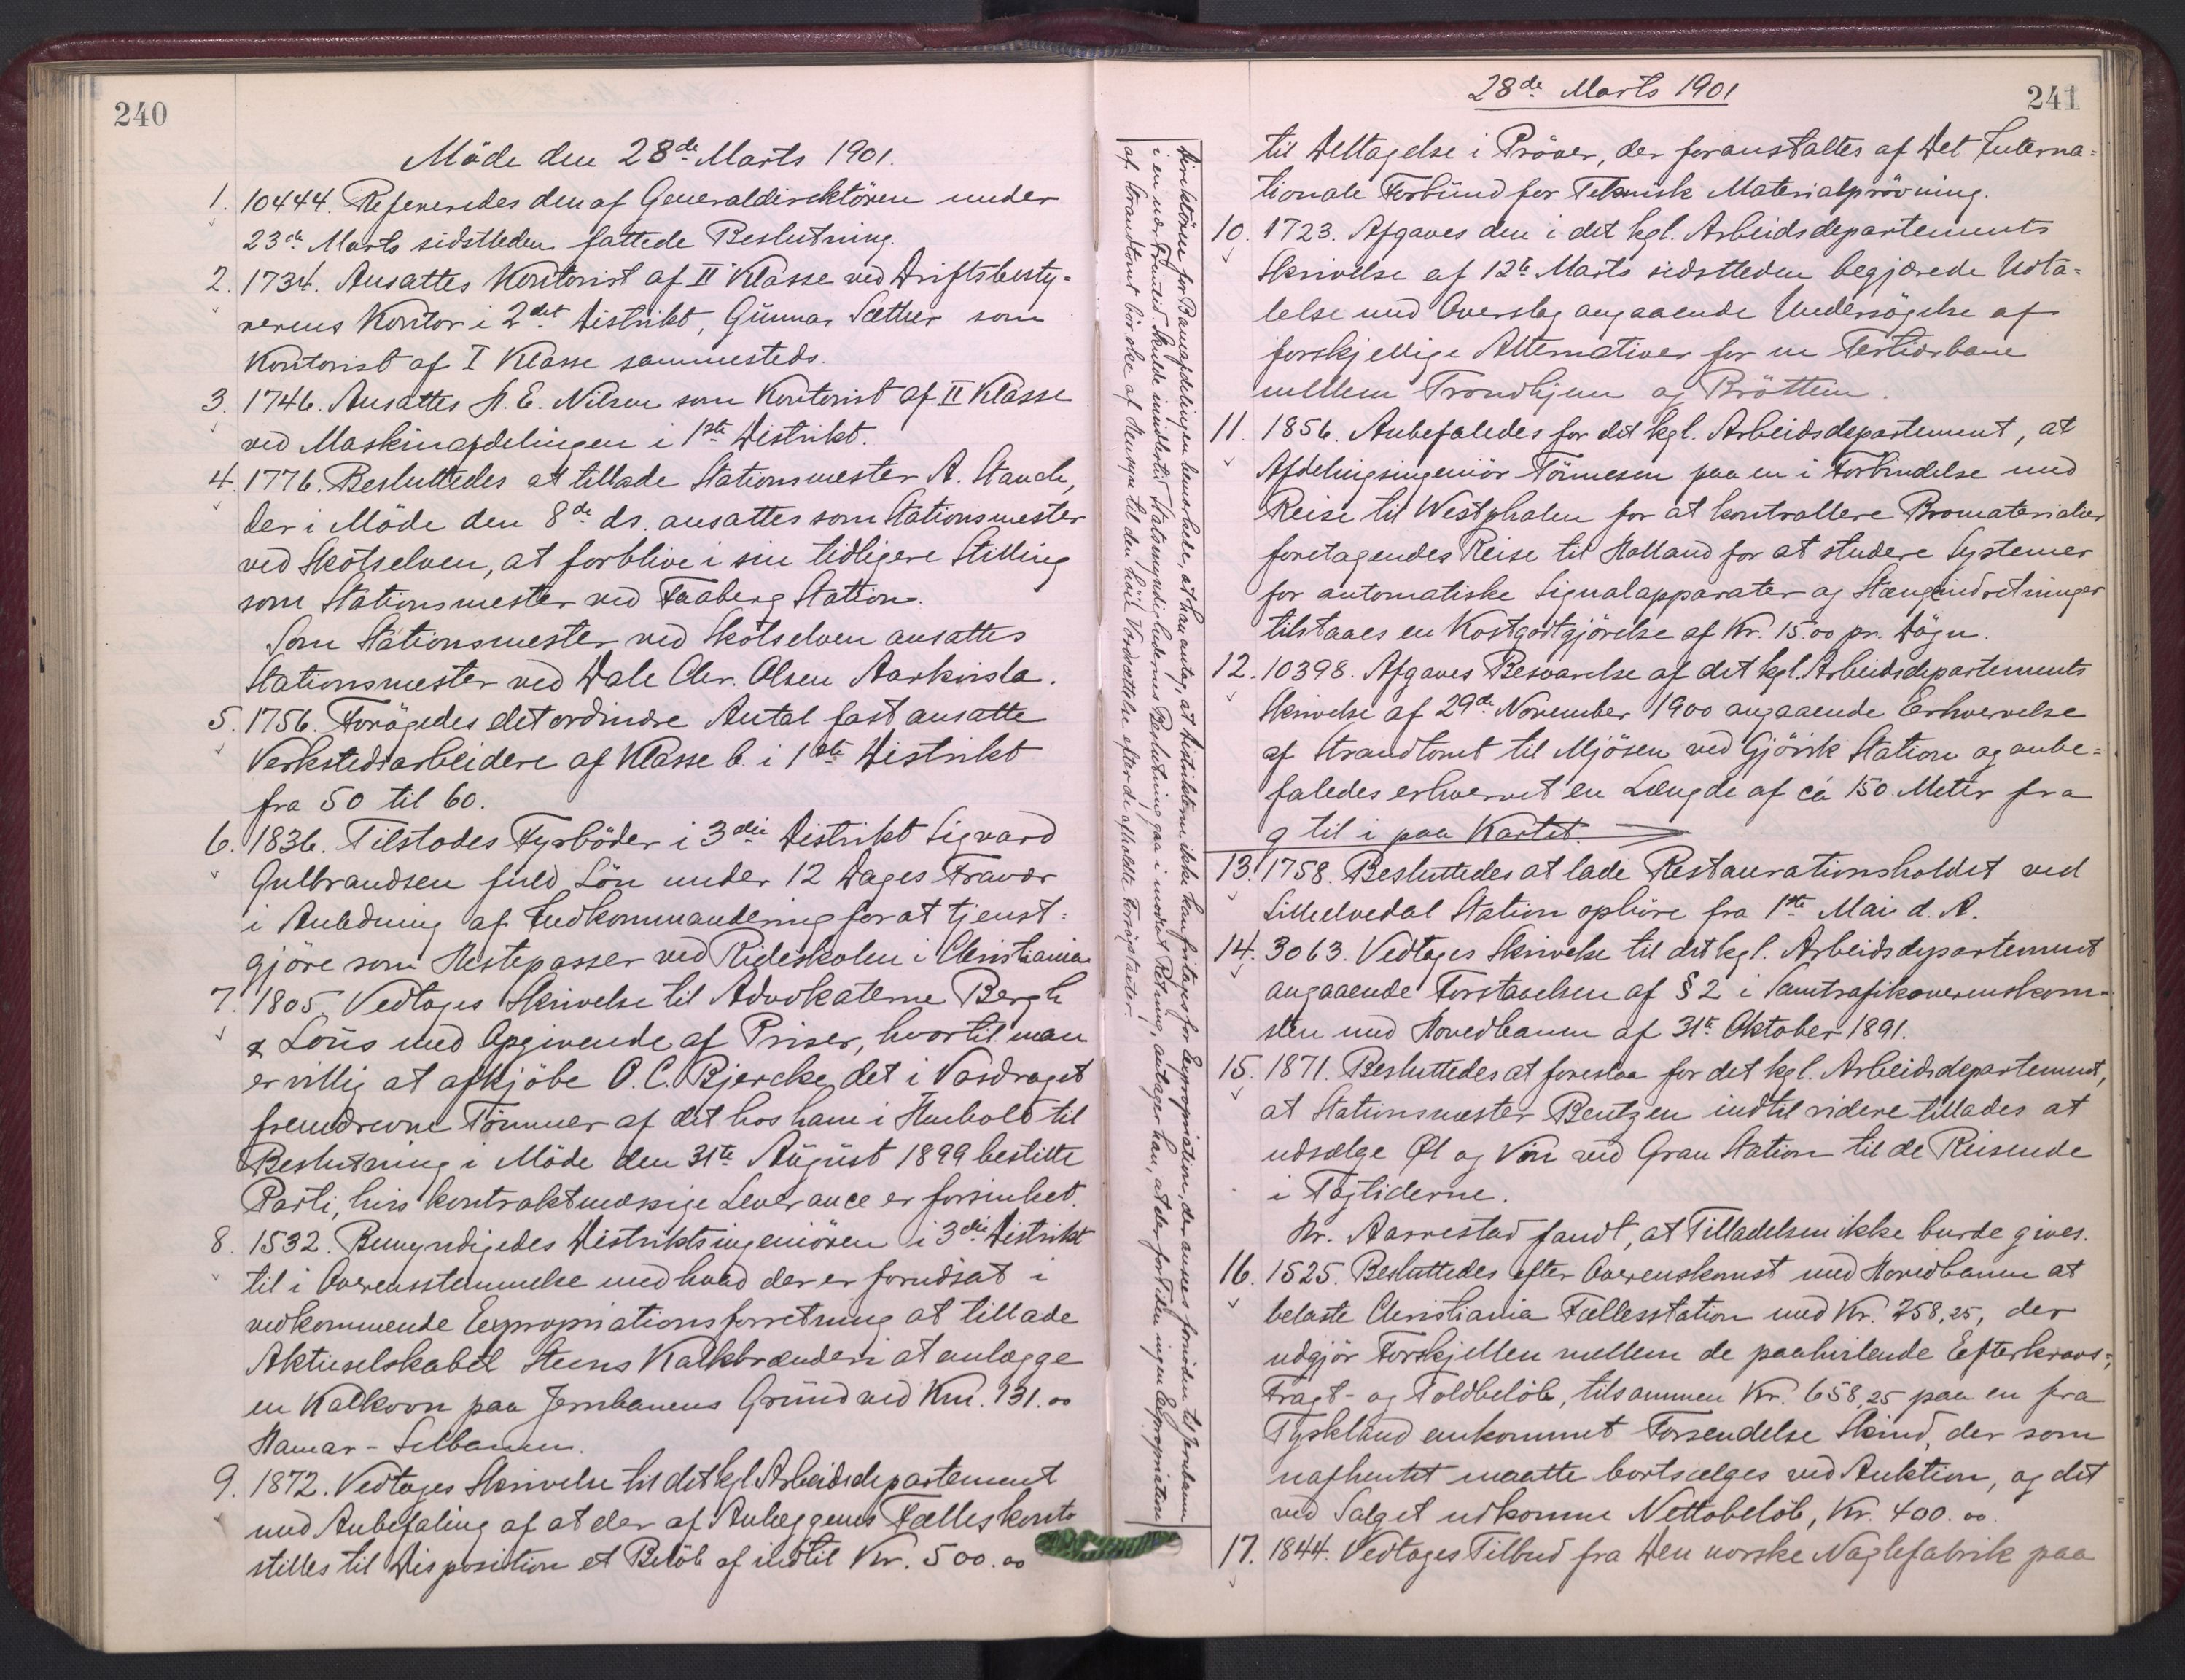 240
Möde den 28de Marts 1901.
1. 10444. Refereredes den af Generaldirektören under
23de Marts sidstleden fattede Beslutning.
2. 1734. Ansattes Kontorist af II Klasse ved Driftsbesty-
rerens Kontor i 2det Distrikt, Gunnar Sæther som
Kontorist af I Klasse sammesteds.
3. 1746. Ansattes H. E. Nilsen som Kontorist af II Klasse
ved Maskinafdelingen i 1ste Distrikt.
4. 1776. Besluttedes at tillade Stationsmester A. Stauch,
der i Möde den 8de ds. ansattes som Stationsmester
ved Skotselven, at forblive i sin tidligere Stilling
som Stationsmester ved Faaberg Station.
Som Stationsmester ved Skotselven ansattes
Stationsmester ved Dale Chr. Olsen Aarkvisla.
5. 1756. Forögedes det ordinære Antal fast ansatte
Verkstedsarbeidere af Klasse b. i 1ste Distrikt
fra 50 til 60.
6. 1836. Tilstodes Fyrböder i 3die Distrikt Sigvard
Gulbrandsen fuld Lön under 12 Dages Fravær
i Anledning af Indkommandering for at tjenst=
gjöre som Hestepasser ved Rideskolen i Christiania
7. 1805. Vedtoges Skrivelse til Advokaterne Bergh
& Lous med Opgivende af Priser, hvortil man
er villig at afkjöbe O. C. Bjercke det i Vasdraget
fremdrevne Tömmer af det hos ham i Henhold til
Beslutning i Möde den 31te August 1899 bestilte
Parti, hvis kontraktmæssige Leverance er forsinket.
8. 1532. Bemyndigedes Distriktsingeniören i 3die Distrikt
til i Overensstemmelse med hvad der er forudsat i
vedkommende Expropriationsforretning at tillade
Aktieselskabet Steens Kalkbrænderi at anlægge
en Kalkovn paa Jernbanens Grund ved Km. 131.00
Hamar-Selbanen.
9. 1872. Vedtoges Skrivelse til det kgl. Arbeidsdepartement
med Anbefaling af at der af Anlæggenes Fælleskonto
stilles til Disposition et Belöb af indtil Kr. 500.00
28de Marts 1901
241
til Deltagelse i Pröver, der foranstaltes af Det Interna=
tionale Forbund for Teknisk Materialprövning.
10. 1723. Afgaves den i det kgl. Arbeidsdepartements
Skrivelse af 12te Marts sidstleden begjærede Udta=
lelse med Overslag angaaende Undersögelse af
forskjellige Alternativer for en Tertiærbane
mellem Trondhjem og Bröttem.
11. 1856. Anbefaledes for det kgl. Arbeidsdepartement, at
Afdelingsingeniör Tönnesen paa en i Forbindelse med
Reise til Westphalen for at kontrollere Bromaterialier
foretagendes Reise til Holland for at studere Systemer
for automatiske Signalapparater og Stængeindretninger
tilstaaes en Kostgodtgjörelse af Kr. 15.00 pr. Dögn.
12. 10398. Afgaves Besvarelse af det kgl. Arbeidsdepartements
Skrivelse af 29de November 1900 angaaende Erhvervelse
af Strandtomt til Mjösen ved Gjövik Station og anbe=
faledes erhvervet en Længde af ca 150 Meter fra
g til i paa Kartet.
Direktören for Baneafdelingen bemærkede, at han antog, at Distrikterne ikke kan fritages for Expropriation, der ansees fornöden til Jernbanen
i en nær Fremtid. Skulde imidlertid Statsmyndighedernes Beslutning gaa i modsat Retning, antager han, at der for Tiden ingen Expropriation
af Strandtomt bör ske af Hensyn til den höie Værdsættelse efter de afholdte Forligstakster.
13. 1758. Besluttedes at lade Restaurationsholdet ved
Lilleelvedal Station ophöre fra 1ste Mai d. A.
14. 3063. Vedtoges Skrivelse til det kgl. Arbeidsdepartement
angaaende Forstaaelsen af § 2 i Samtrafikoverenskom-
sten med Hovedbanen af 31te Oktober 1891.
15. 1871. Besluttedes at foreslaa for det kgl. Arbeidsdepartement,
at Stationsmester Bentzen indtil videre tillades at
udsælge Øl og Vin ved Gran Station til de Reisende
i Togtiderne.
Hr. Aarrestad fandt, at Tilladelsen ikke burde gives.
16. 1525. Besluttedes efter Overenskomst med Hovedbanen at
belaste Christiania Fællesstation med Kr. 258,25, der
udgjör Forskjellen mellem de paahvilende Efterkravs-,
Fragt- og Toldbelöb, tilsammen Kr. 658,25 paa en fra
Tyskland ankommet Forsendelse Skind, der som
uafhentet maatte bortsælges ved Auktion, og det
ved Salget udkomne Nettobelöb, Kr. 400.00.
17. 1844. Vedtoges Tilbud fra Den norske Naglefabrik paa